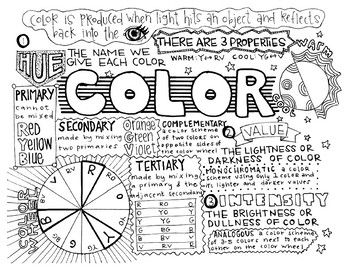 COLOR IS PRODUCED WHEN LIGHT HITS AN OBJECT AND REFLECTS
BACK INTO THE
THERE ARE 3 PROPERTIES
1
HUE
THE NAME WE
GIVE EACH COLOR
WARM
COOL
WARM
COOL
COLOR
PRIMARY
cannot
be mixed
RED
YELLOW
BLUE
SECONDARY
made by mixing
two primaries
Orange
Green
Violet
COMPLEMENTARY
a color scheme
of two colors on
opposite sides of
the color wheel
2
VALUE
THE LIGHTNESS OR
DARKNESS OF COLOR
MONOCHROMATIC a color
scheme using only 1 color and
its lighter and darker values
COLOR
WHEEL
TERTIARY
made by mixing
a primary & the
adjacent secondary
R RO O
O YO Y
Y YG G
G BG B
B BV V
V RV R
3
INTENSITY
THE BRIGHTNESS OR
DULLNESS OF COLOR
ANALOGOUS a color scheme
of 3-5 colors next to each
other on the color wheel